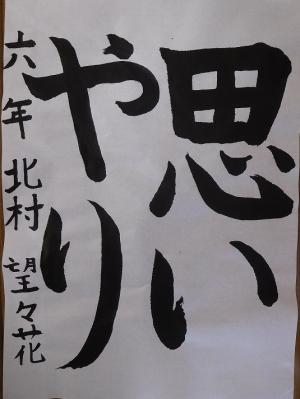 思い
やり
六年 北村 望々花